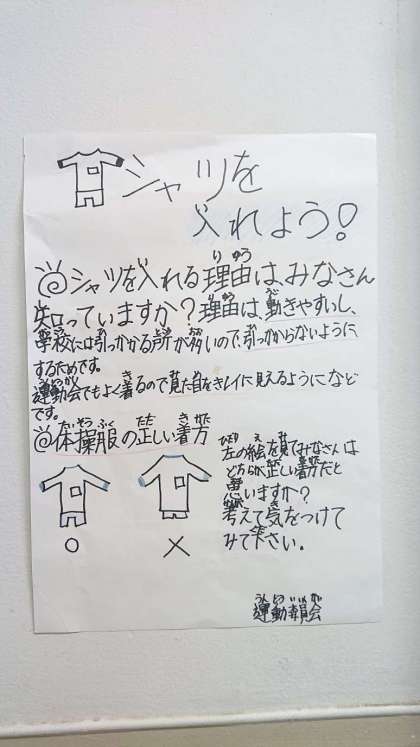 シャツを
入れよう!
@シャツを入れる理由は、みなさん
知っていますか?理由は、動きやすいし、
学校には引っかかる所が多いので、引っかからないように
するためです。
運動会でもよく着るので見た目をキレイに見えるようになど
です。
@体操服の正しい着方
左の絵を見てみなさんは
どちらが正しい着方だと
思いますか?
考えて気をつけて
みて下さい。
○ ×
運動委員会